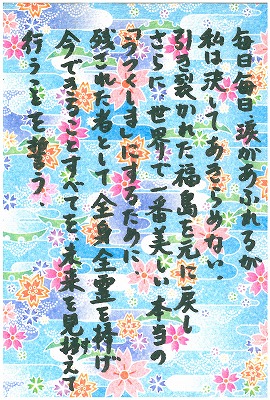 毎日毎日、涙があふれるが
私は決してあきらめない。
引き裂かれた福島を元に戻し
さらに、世界で一番美しい本当の
「うつくしま」にするために、
残された者として 全身全霊を捧げ
今できることすべてを、未来を見据えて
行うことを誓う。